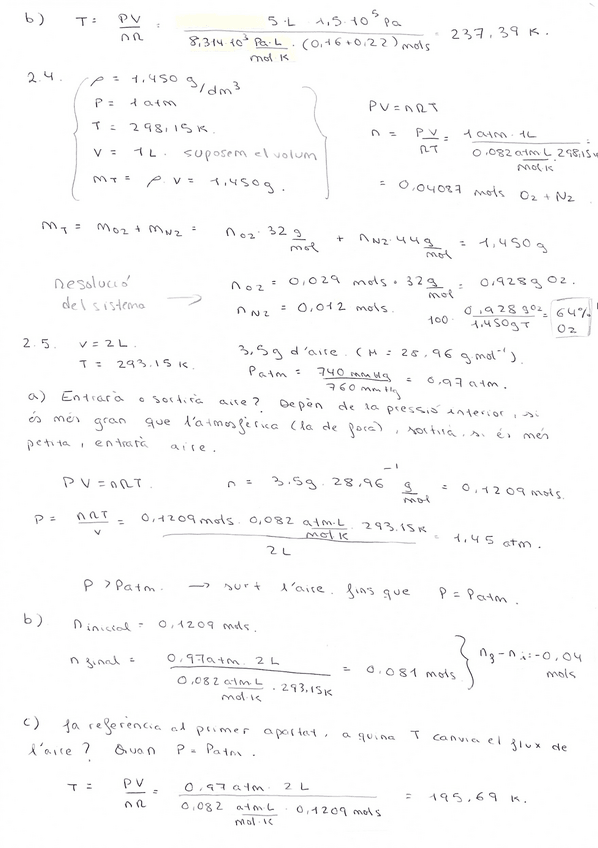 b) T = PV/nR = 5·L 1,5·10⁵ Pa / 8,314·10³ Pa·L/mol·K · (0,16+0,22) mols = 237,39 K.
2.4. ρ = 1,450 g/dm³
P = 1 atm
T = 298,15 K.
V = 1 L. suposem el volum
mT = ρ·V = 1,450 g.
PV = nRT
n = PV/RT = 1 atm · 1L / 0,082 atm·L/mol·K · 298,15 K =
= 0,04087 mols O2 + N2
mT = mO2 + mN2 = nO2 · 32 g/mol + nN2 · 44 g/mol = 1,450 g
Resolució del sistema →
nO2 = 0,029 mols · 32 g/mol = 0,928 g O2.
nN2 = 0,012 mols.
100 · 0,928 gO2 / 1,450 gT = 64% O2
2.5. V = 2 L.
T = 293.15 K.
3,5 g d'aire. (M = 28,96 g·mol⁻¹).
Patm = 740 mmHg / 760 mmHg = 0,97 atm.
a) Entrarà o sortirà aire? Depèn de la pressió interior, si
és més gran que l'atmosfèrica (la de fora), sortirà. si és més
petita, entrarà aire.
PV = nRT. n = 3.5g · 28,96⁻¹ g/mol = 0,1209 mols.
P = nRT/V = 0,1209 mols · 0,082 atm·L/mol·K · 293.15K / 2 L = 1,45 atm.
P > Patm. → surt l'aire. fins que P = Patm.
b) n inicial = 0,1209 mols.
n final = 0,97 atm · 2 L / 0,082 atm·L/mol·K · 293,15 K = 0.081 mols } nf - ni = -0,04 mols
c) fa referència al primer apartat, a quina T canvia el flux de
l'aire? Quan P = Patm.
T = PV/nR = 0,97 atm · 2 L / 0,082 atm·L/mol·K · 0,1209 mols = 195,69 K.